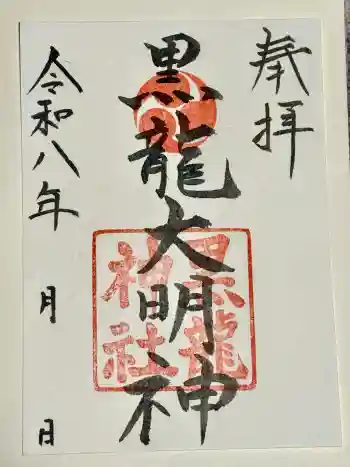 奉拝
黒龍大明神
黒龍
神社
令和八年 月 日